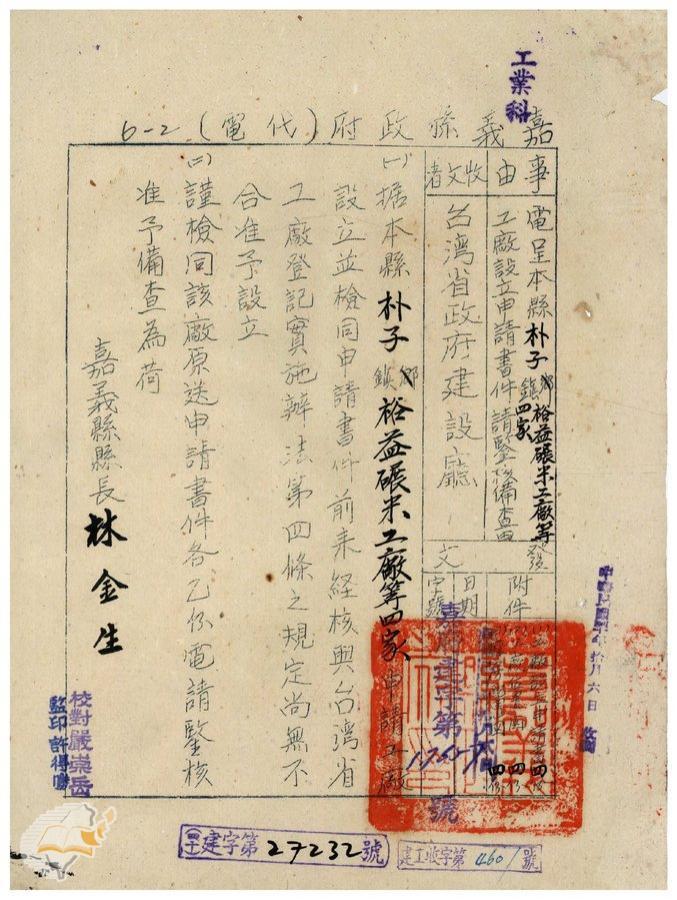 工業科
嘉義縣政府(代電)6-2
事由
電呈本縣朴子鄉鎮裕益碾米工廠等四家
工廠設立申請書件請鑒核備查由
收文者
台湾省政府建設廳
發文
附件
日期
字號
嘉府建字第
號
㈠据本縣朴子鄉鎮裕益碾米工廠等四家申請工廠
設立並檢同申請書件前来経核與台湾省
工廠登記實施辦法第四條之規定尚無不
合准予設立
㈡謹檢同該廠原送申請書件各乙份電請鑒核
准予備查為荷
嘉義縣縣長林金生
校對嚴崇岳
監印許得
建字第27232號
建工收字第4601號